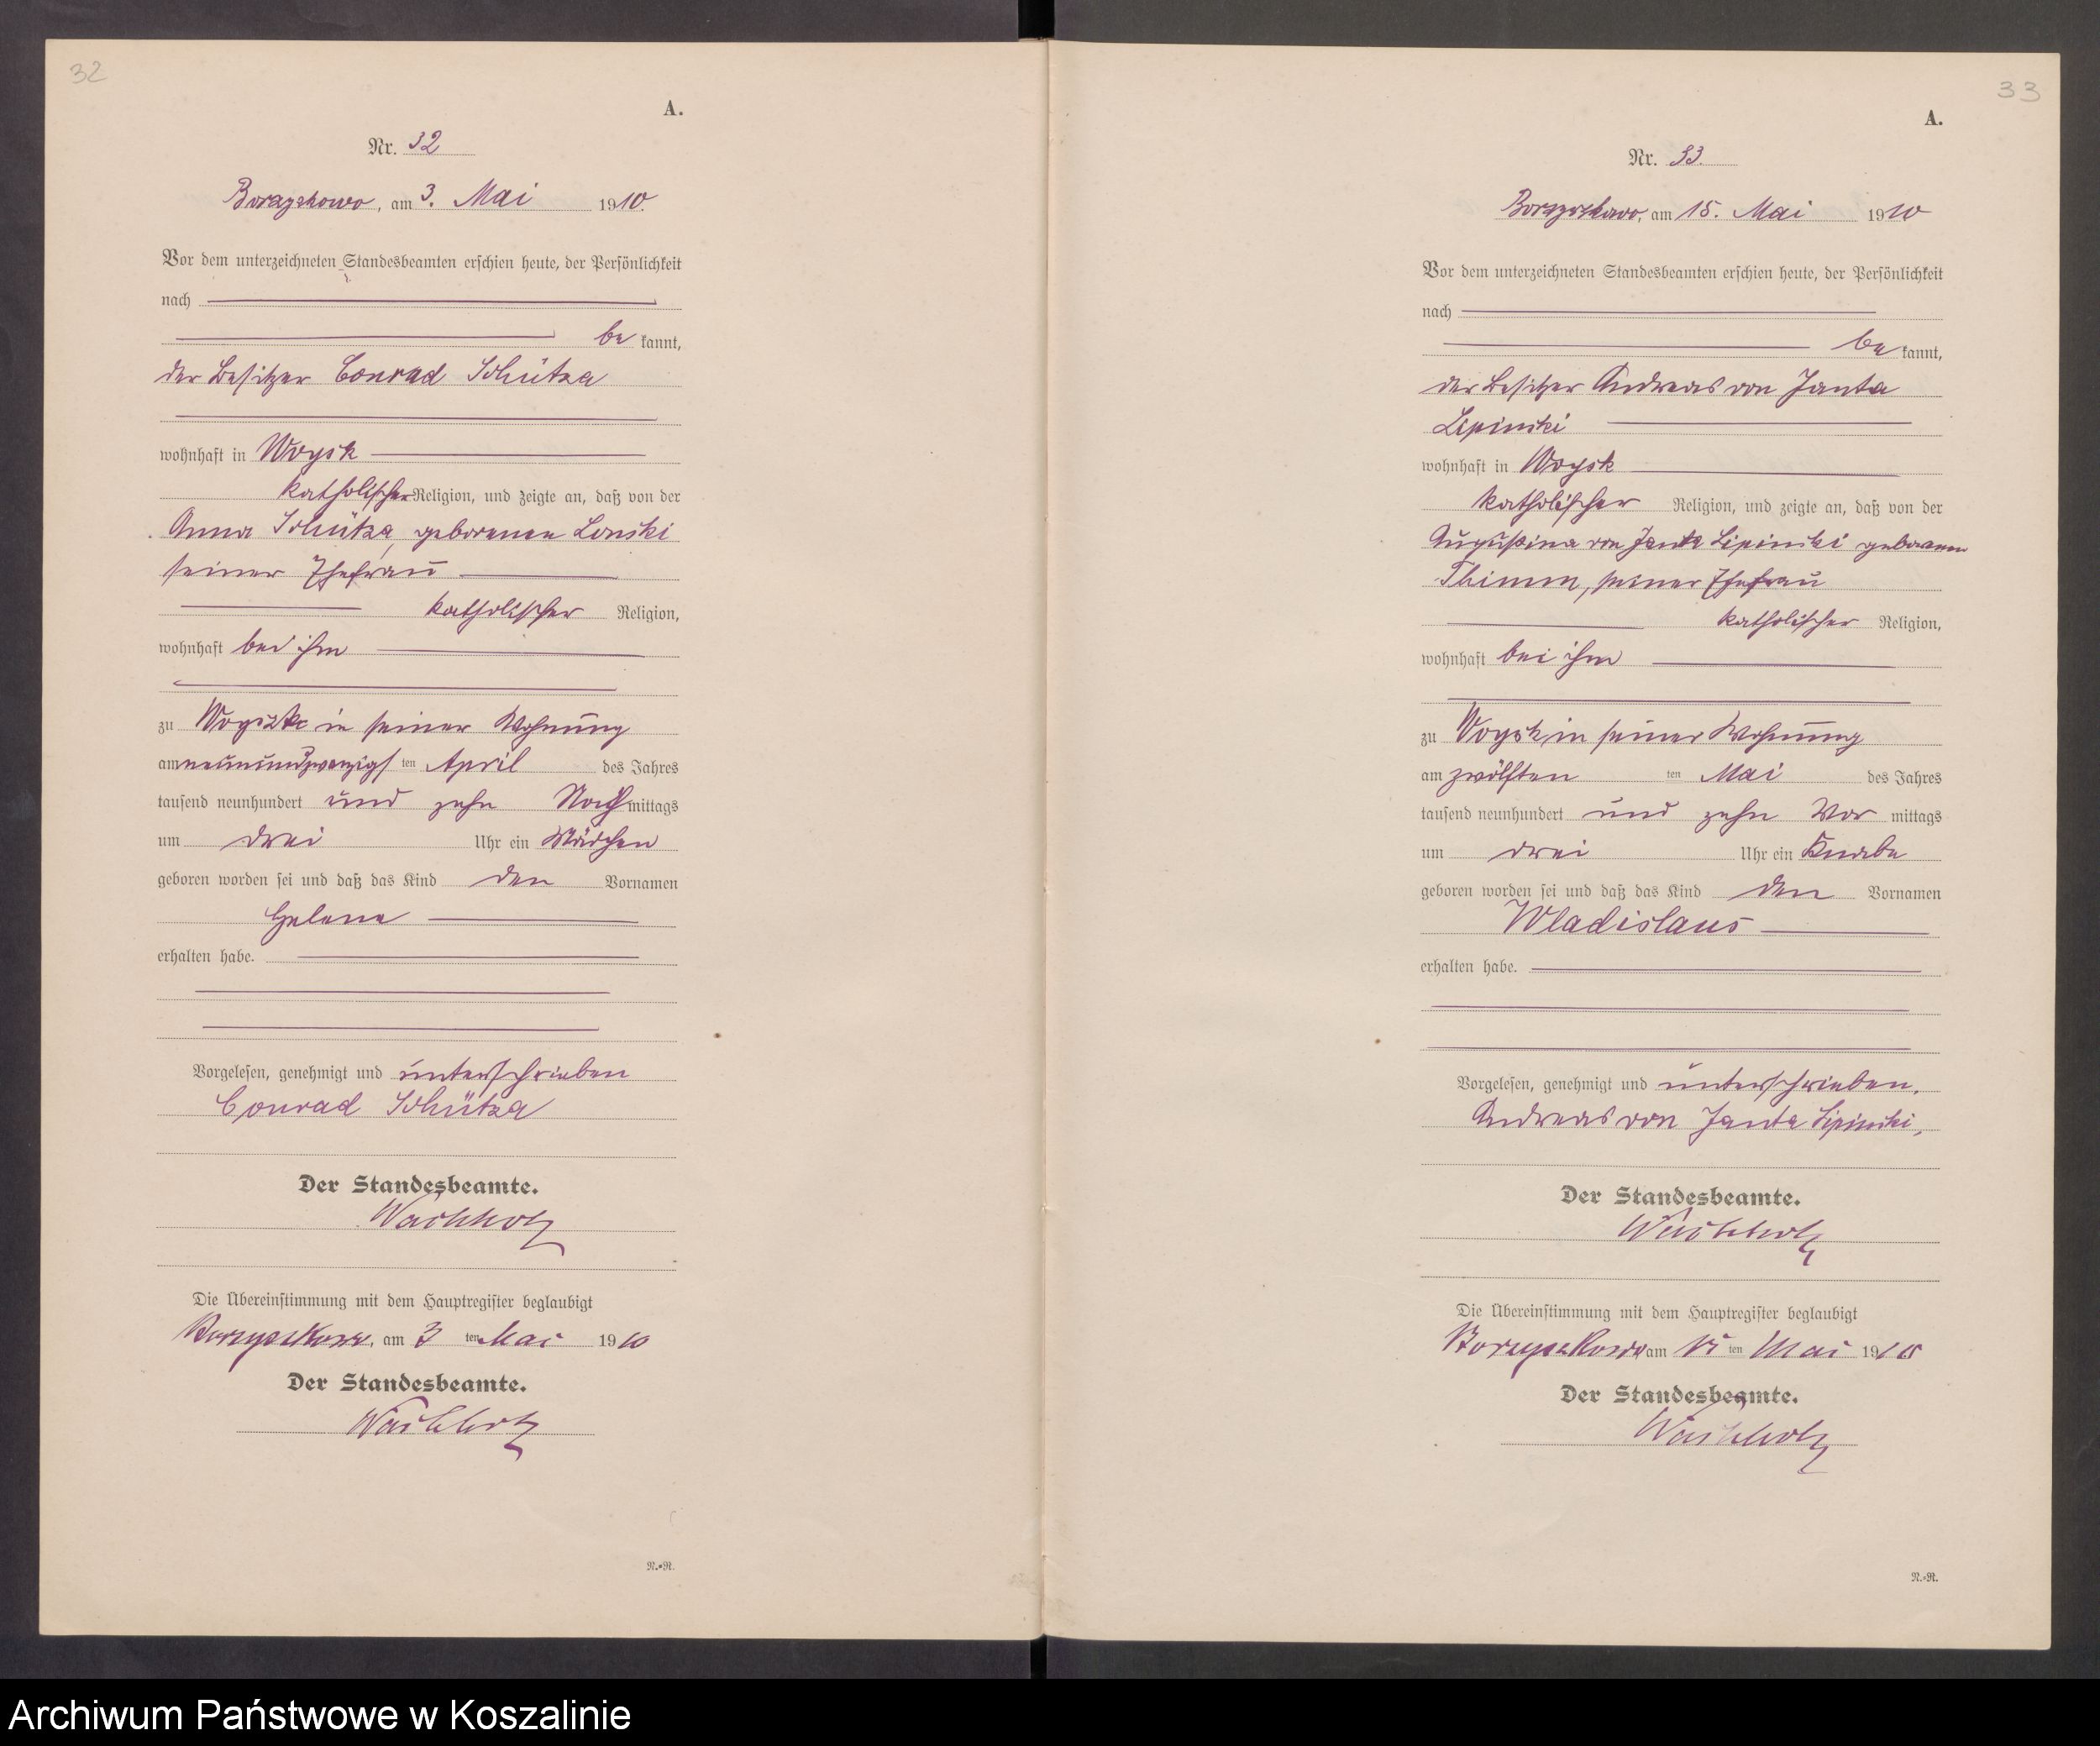 32
A.
Nr. 32
Borzyskowo, am 3. Mai 1910.
Vor dem unterzeichneten Standesbeamten erschien heute, der Persönlichkeit
nach
be kannt,
der Besitzer Conrad Schütza
wohnhaft in Woysk
katholischer Religion, und zeigte an, daß von der
Anna Schütza, geborenen Lonski
seiner Ehefrau
katholischer Religion,
wohnhaft bei ihm
zu Woyszk in seiner Wohnung
am neunundzwanzigsten April des Jahres
tausend neunhundert und zehn Nachmittags
um drei Uhr ein Mädchen
geboren worden sei und daß das Kind den Vornamen
Helene
erhalten habe.
Vorgelesen, genehmigt und unterschrieben
Conrad Schütza
Der Standesbeamte.
Wachholz
Die Übereinstimmung mit dem Hauptregister beglaubigt
Borzyskowo, am 3 ten Mai 1910
Der Standesbeamte.
Wachholz
N.=R.
33
A.
Nr. 33.
Borzyskowo, am 15. Mai 1910
Vor dem unterzeichneten Standesbeamten erschien heute, der Persönlichkeit
nach
be kannt,
der Besitzer Andreas von Janta
Lipinski
wohnhaft in Woysk
katholischer Religion, und zeigte an, daß von der
Augustina von Janta Lipinski geborenen
Thimm, seiner Ehefrau
katholischer Religion,
wohnhaft bei ihm
zu Woysk in seiner Wohnung
am zwölften ten Mai des Jahres
tausend neunhundert und zehn Vor mittags
um drei Uhr ein Knabe
geboren worden sei und daß das Kind den Vornamen
Wladislaus
erhalten habe.
Vorgelesen, genehmigt und unterschrieben.
Andreas von Janta Lipinski,
Der Standesbeamte.
Wachholz
Die Übereinstimmung mit dem Hauptregister beglaubigt
Borzyskowo am 15 ten Mai 1910
Der Standesbeamte.
Wachholz
N.=R.
Archiwum Państwowe w Koszalinie